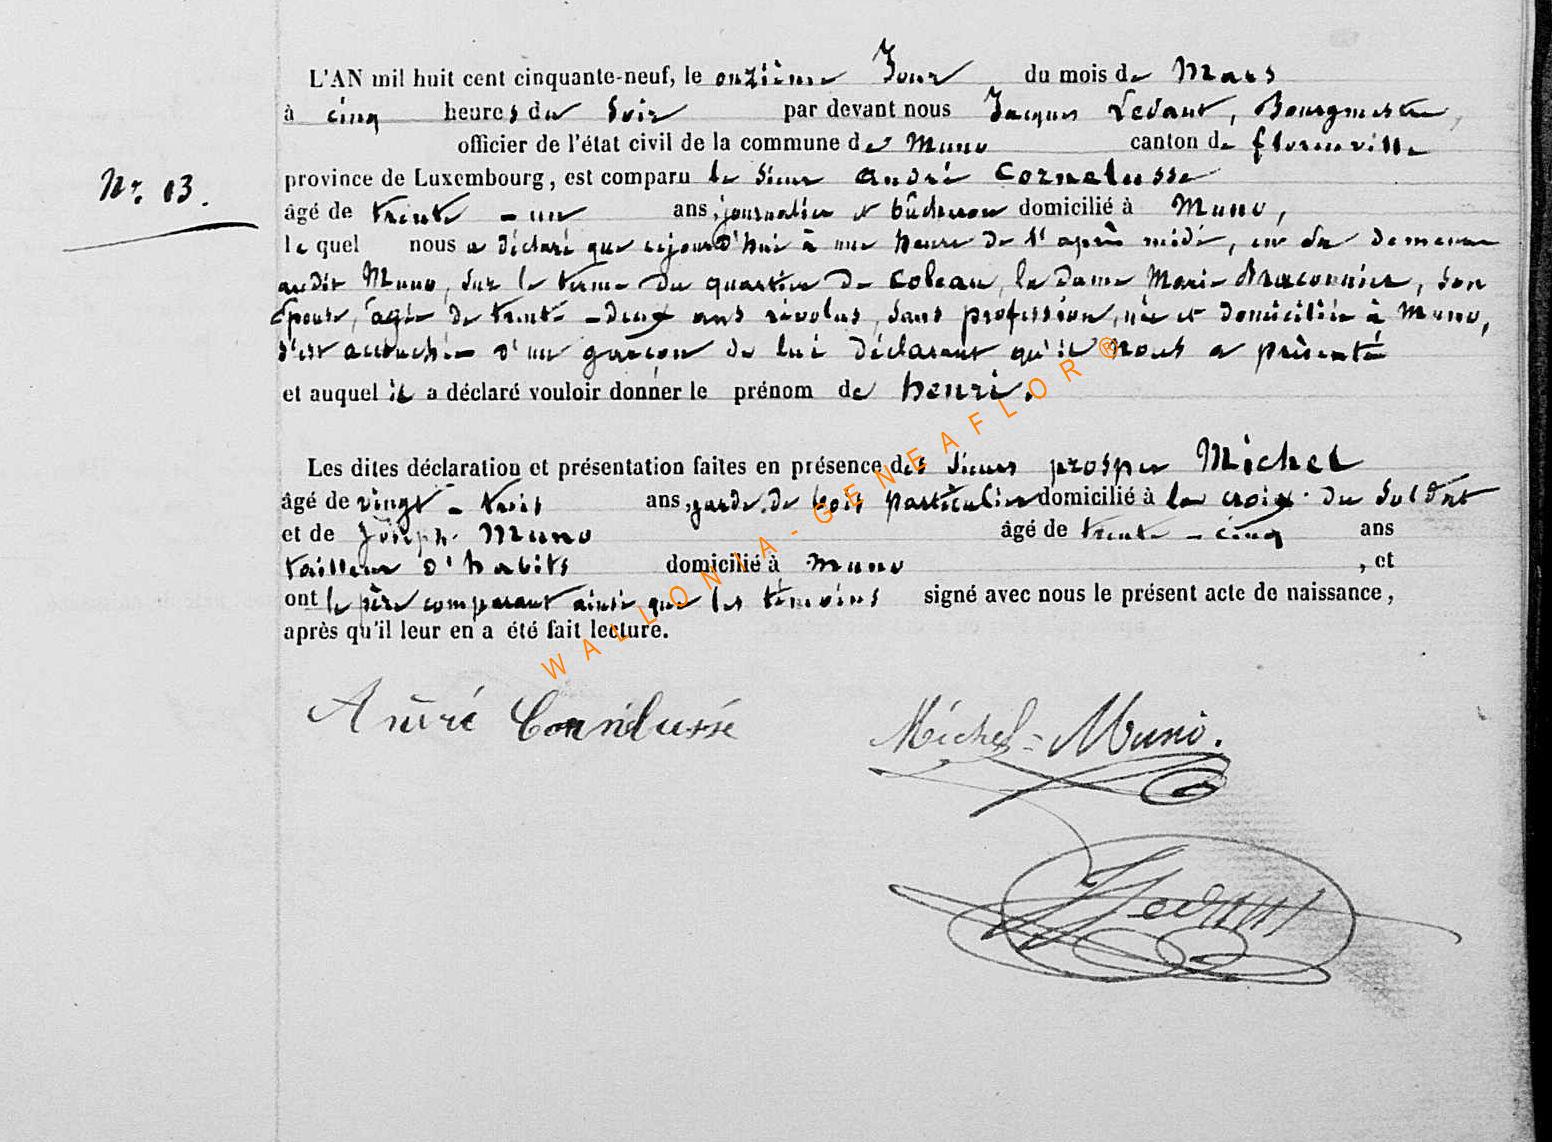 L'AN mil huit cent cinquante-neuf, le onzième Jour du mois de Mars
à cinq heures du Soir par devant nous Jacques Ledant, Bourgmestre,
officier de l'état civil de la commune de Muno canton de florenville
Nr. 13.
province de Luxembourg, est comparu le Sieur André Cornelusse
âgé de trente - un ans, journalier et bûcheron domicilié à Muno,
le quel nous a déclaré que cejourd'hui à une heure de l'après midi, en sa demeure
audit Muno, sur le terme du quartier de Coleau, la dame Marie Braconnier, son
Epouse, âgée de trente-deux ans révolus, sans profession, née et domiciliée à Muno,
s'est accouchée d'un garçon de lui déclarant qu'il nous a présenté
et auquel il a déclaré vouloir donner le prénom de henri.
Les dites déclaration et présentation faites en présence des sieurs prosper Michel
âgé de vingt - trois ans, garde de bois particulier domicilié à la croix du Soldat
et de Joseph Muno âgé de trente - cinq ans
tailleur d'habits domicilié à Muno , et
ont le père comparant ainsi que les témoins signé avec nous le présent acte de naissance,
après qu'il leur en a été fait lecture.
WALLONIA-GENEAFLOR®
André Cornélusse Michel = Muno.
JLedant